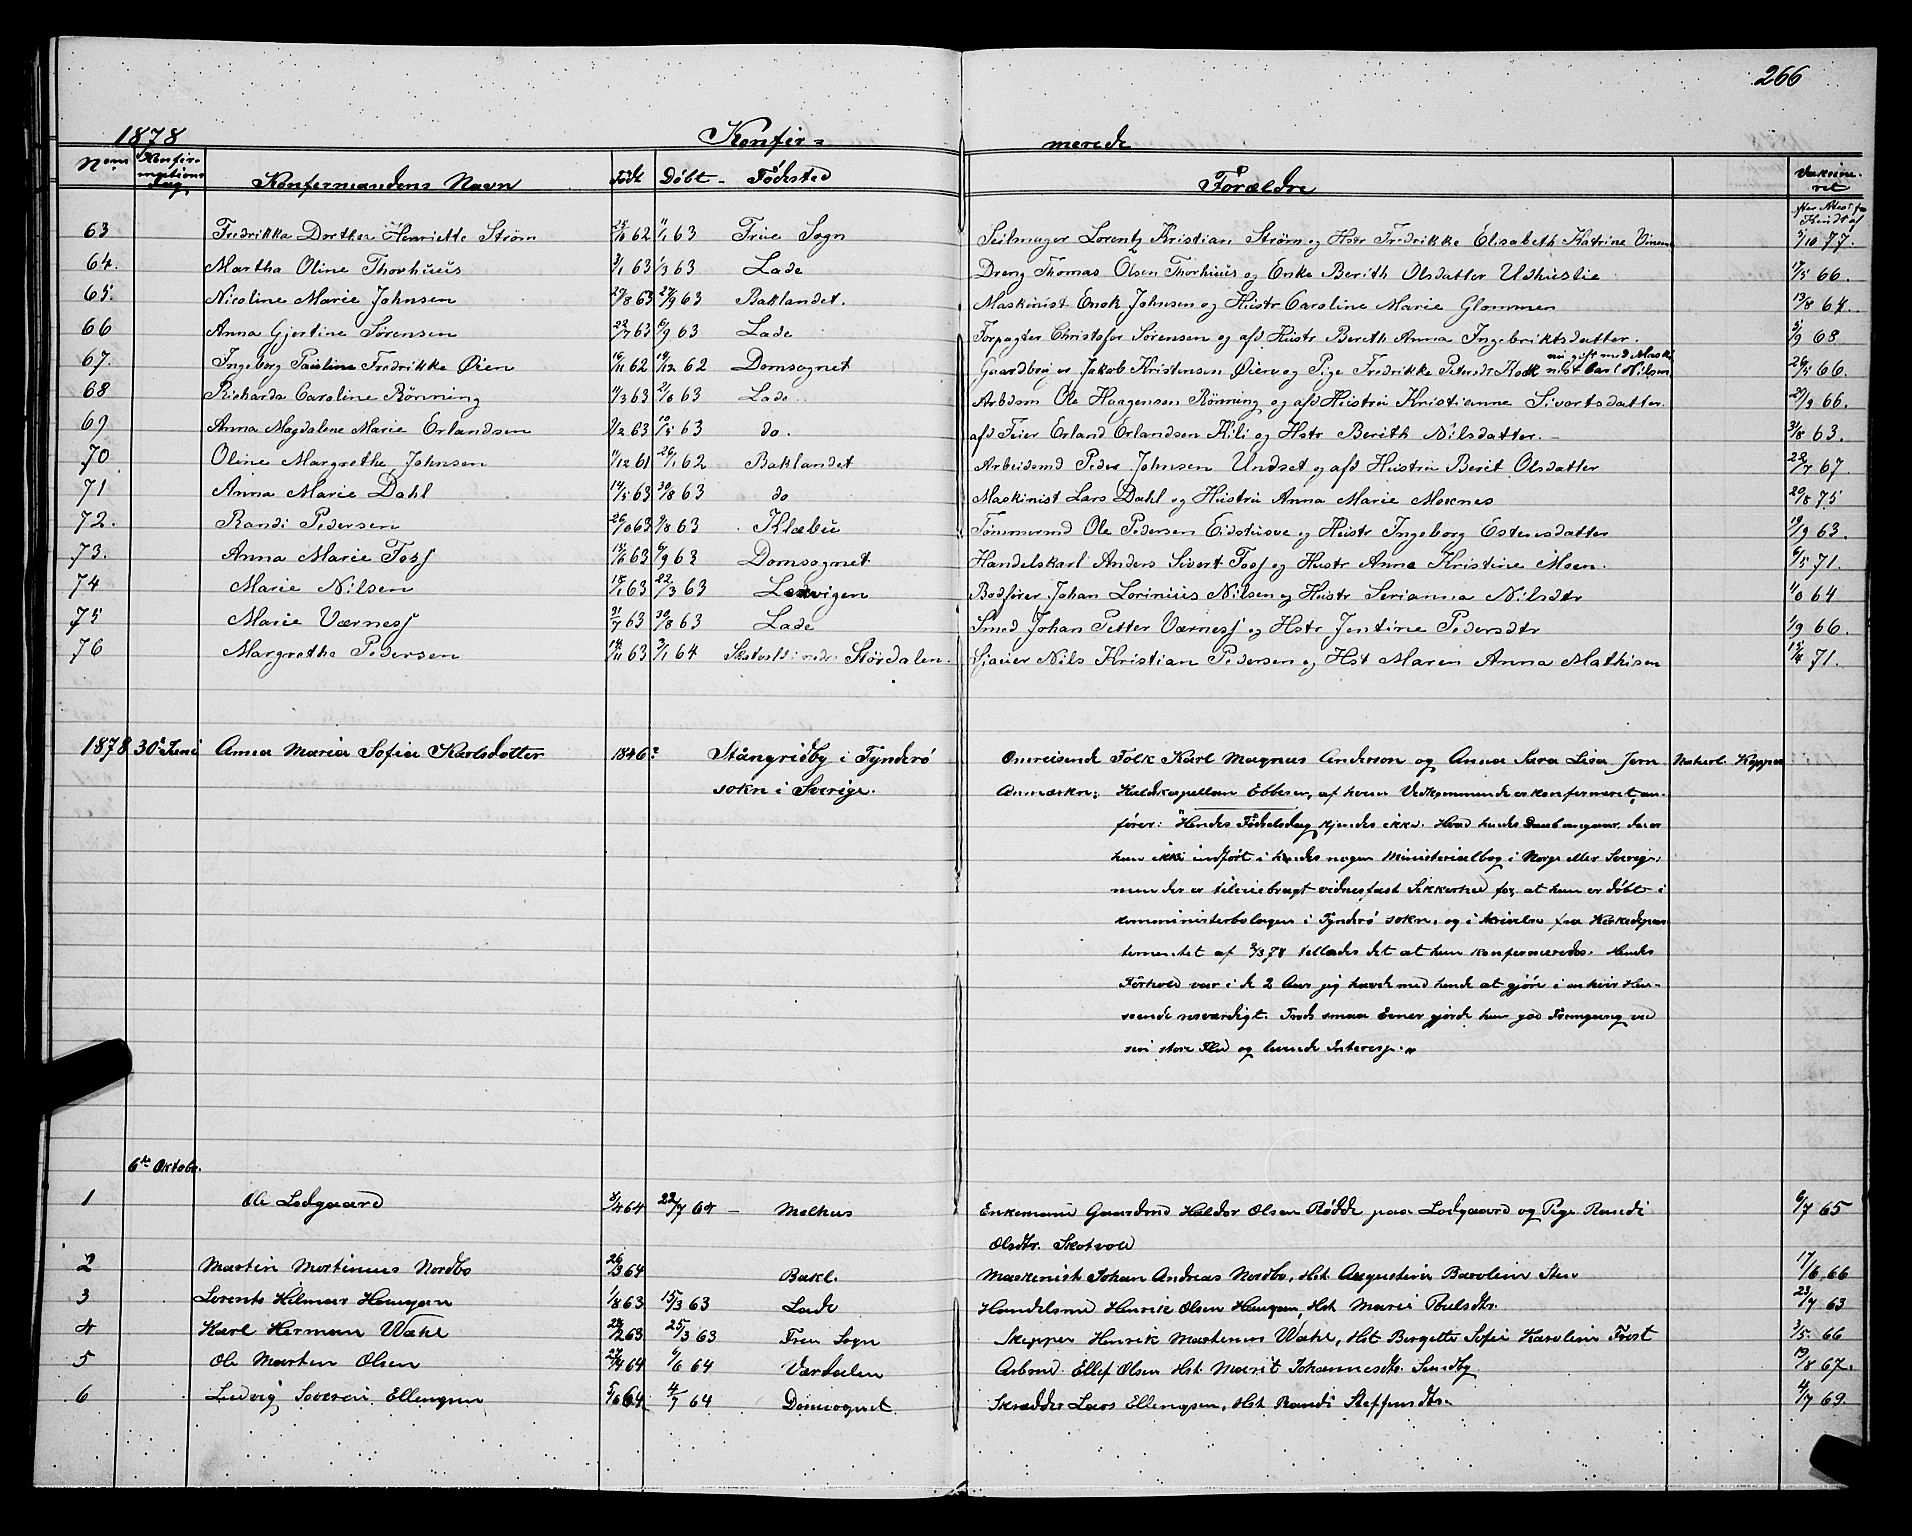 266
1878 Konfir= merede
No. Konfirmations Dag Konfirmandens Navn Født Døbt - Fødested Forældre Vaksineret
63 Fredrikka Dorthea Henriette Strøm 62 1/1 63 Frue Sogn Seilmager Lorentz Kristian Strøm og Hstr Fredrikke Elisabeth Katrine 5/10 77.
64. Martha Oline Thorhuus 3/1 63 1/3 63 Lade Dreng Thomas Olsen Thorhuus og Enke Berith Olsdatter Udhuslie 17/5 66.
65. Nicoline Marie Johnsen 29/8 63 27/9 63 Baklandet. Maskinist Enok Johnsen og Hustr Caroline Marie Glommen 13/8 64.
66 Anna Gjertine Sørensen 22/7 63 6/9 63 Lade Forpagter Christofer Sørensen og afd Hustr Bereth Anna Ingebriktsdatter. 5/9 68
67. Ingeborg Pauline Fredrikke Øien 16/11 62 19/12 62 Domsognet Gaardbrug er Jakob Kristensen Øien og Pige Fredrikke Petersdt Kock nu gift med Maskinist Carl Nilsen 26/5 66.
68 Richarda Caroline Rønning 14/3 63 63 Lade Arbdsm Ole Haagensen Rønning og afd Hustru Kristianne Sivertsdatter. 29/9 66.
69 Anna Magdalene Marie Erlandsen 9/2 63 10/5 63 do. afd Feier Erland Erlandsen Kili og Hstr Berith Nilsdatter. - 31/8 63.
70 Oline Margrethe Johnsen 11/12 61 26/1 62 Baklandet Arbeidsmd Peder Johnsen Undset og afd Hustru Berit Olsdatter 22/7 67
71 Anna Marie Dahl 14/5 63 30/8 63 do Maskinist Lars Dahl og Hustru Anna Marie Moxnes 20/8 75
72. Randi Pedersen 26/6 63 9/8 63 Klæbu Tømmermd Ole Pedersen Eidstusve og Hustr Ingeborg Estensdatter 19/9 63.
73. Anna Marie Foss 15/6 63 6/9 63 Domsognet. Handelskarl Anders Sivert Foss og Hustr Anna Kristine Moen. 6/5 71.
74 Marie Nilsen 15/1 63 22/3 63 Lexvigen Bødker Johan Lorinius Nilsen og Hustr Serianna Nilsdtr 64
75 Marie Værness 31/7 63 30/8 63 Lade Smed Johan Petter Værness og Hstr Jentine Pedersdtr 1/9 66.
76 Margrethe Pedersen 14/11 63 3/1 64 nedre Størdalen. Sjauer Nils Kristian Pedersen og Hst Maren Anna Mathisen 15/4 71.
1878 30te Juni Anna Maria Sofia Karlsdotter 1846? Stångridby i Tynderö Omreisende Folk Karl Magnus Anderson og Anna Sara Lisa Jern Naturl. Kopper
sokn i Sverige. Anmærkn: Huldskapellan Ebbesen, af hvem Vedkommende er konfirmeret, an-
fører: "Hendes Fødselsdag kjendes ikke. Hvad hendes Daab angaar, da er
hun ikke indført i hendes nogen Ministerialbog i Norge eller Sverige;
men der er tilveiebragt vidnesfast Sikkerhed for, at hun er døbt i
komministerbolagen i Tynderö sokn, og i Skrivelse fra Kirkedepar-
tementet af 2/3 78 tillades det at hun konfirmeredes. Hendes
Forhold var i de 2 Aar jeg havde med hende at gjøre i enhver Hen-
seende rosværdigt. Trods smaa Evner gjorde hun god Fremgang ved
sin store Flid og levende Interesse."
6te Oktober.
1 Ole Lodgaard 3/4 64 22/7 64 - Melhus Enkemand Gaardmd Haldor Olsen Rødde paa Lodgaard og Pige Randi 6/7 65
Olsdtr. Skotvold
2 Martin Mortinus Nordbo 26/3 64 Bakl. Maskenist Johan Andreas Nordbo, Hst Augustina Baroline 17/6 66
3 Lorents Hilmar Haugan 1/8 63 15/3 63 Lade Handelsmd Henrik Olsen Haugan, Hst Marie Poulsdtr. 23/7 63
4 Karl Herman Wahl 28/2 63 25/3 63 Frue Sogn Skepper Henrik Martenus Wahl, Hst Bergette Sofie Karoline Frost 3/5 66
5 Ole Marten Olsen 27/4 64 6/6 64 Værdalen Arbmd Ellef Olsen Hst Marit Johannesdtr. Sundby 19/8 67.
6 Ludvig Severin Ellengsen 5/6 64 4/7 64 Domsognet. Skrædder Lars Ellengsen, Hst Randi Steffensdtr. 4/7 69.